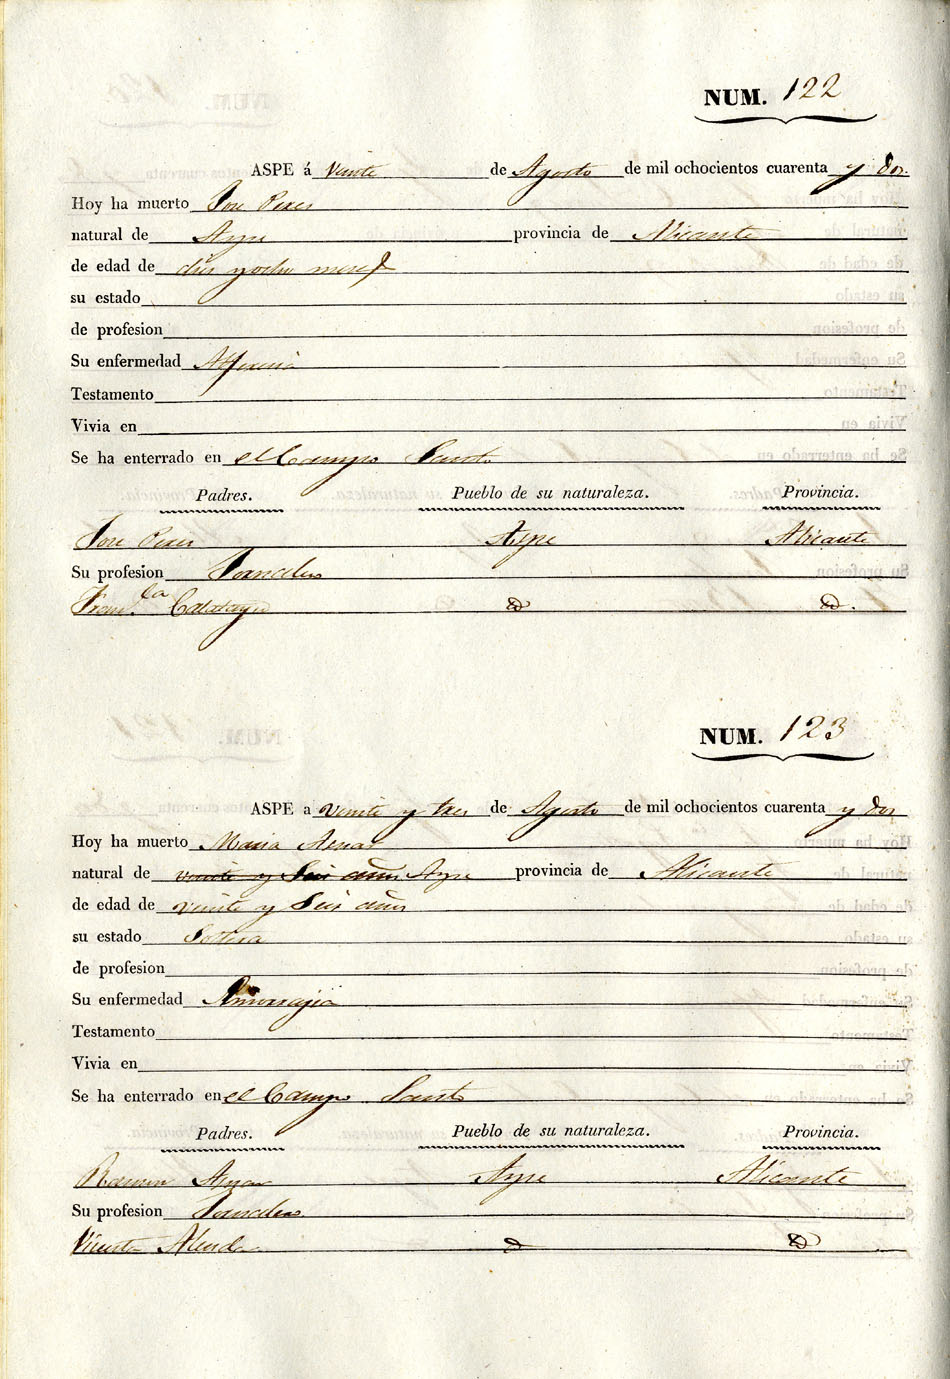 NUM. 122
ASPE á Veinte de Agosto de mil ochocientos cuarenta y dos.
Hoy ha muerto Jose Peres
natural de Aspe provincia de Alicante
de edad de dies y ocho meses
su estado
de profesion
Su enfermedad Alferecia
Testamento
Vivia en
Se ha enterrado en el Campo Santo
Padres. Pueblo de su naturaleza. Provincia.
Jose Peres Aspe Alicante
Su profesion Jornalero
Fran.ca Calatayu id id.
NUM. 123
ASPE a veinte y tres de Agosto de mil ochocientos cuarenta y dos
Hoy ha muerto Maria
natural de veinte y Seis años Aspe provincia de Alicante
de edad de veinte y Seis años
su estado Soltera
de profesion
Su enfermedad
Testamento
Vivia en
Se ha enterrado en el Campo Santo
Padres. Pueblo de su naturaleza. Provincia.
Ramon Aspe Alicante
Su profesion Jornalero
Vicenta id id